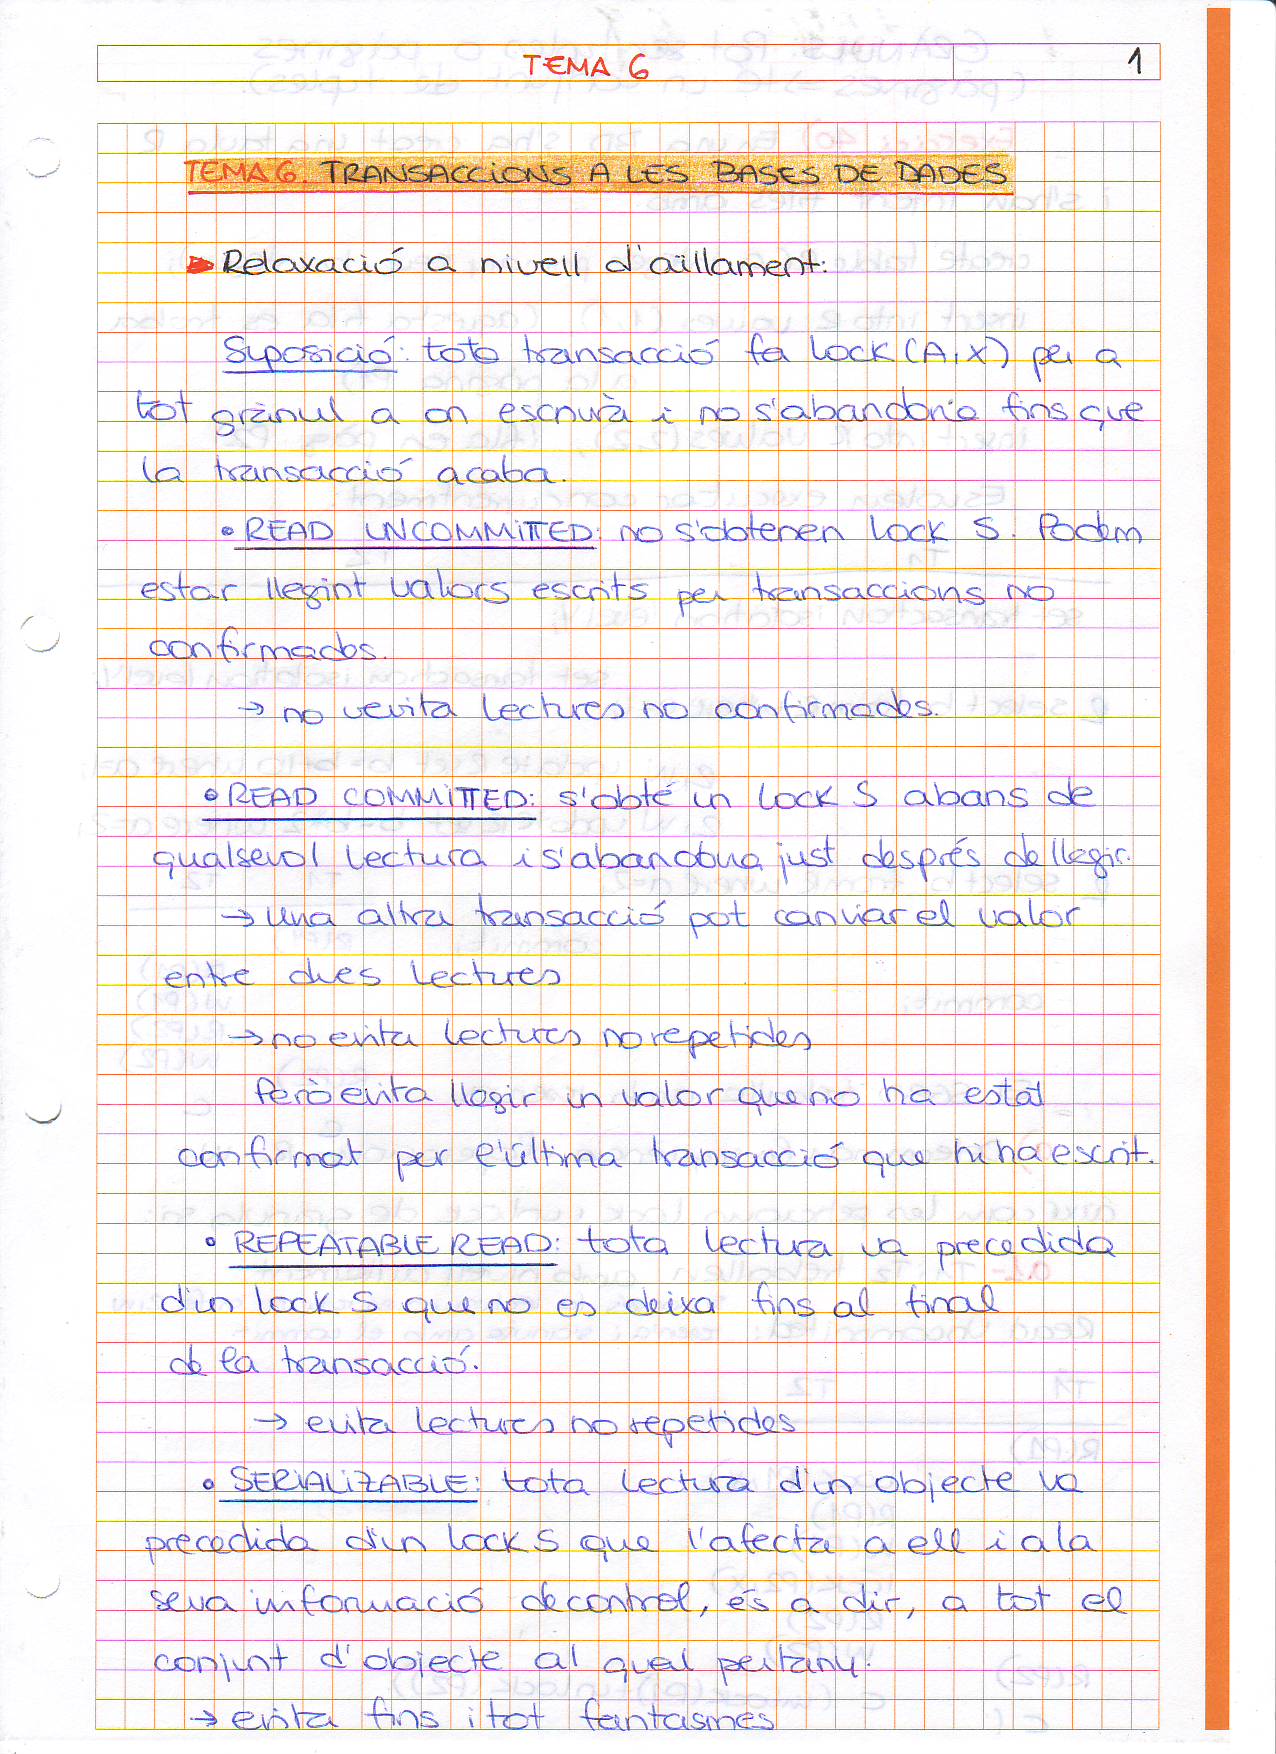 TEMA 6 1
TEMA 6. TRANSACCIONS A LES BASES DE DADES
Relaxació a nivell d'aïllament:
Suposició: tota transacció fa lock (A,X) per a
tot grànul a on escriurà i no s'abandona fins que
la transacció acaba.
• READ UNCOMMITTED: no s'obtenen lock S. Podem
estar llegint valors escrits per transaccions no
confirmades.
→ no evita lectures no confirmades.
• READ COMMITTED: s'obté un lock S abans de
qualsevol lectura i s'abandona just després de llegir.
→ una altra transacció pot canviar el valor
entre dues lectures
→ no evita lectures no repetides
Però evita llegir un valor que no ha estat
confirmat per l'última transacció que hi ha escrit.
• REPEATABLE READ: tota lectura va precedida
d'un lock S que no es deixa fins al final
de la transacció.
→ evita lectures no repetides
• SERIALIZABLE: tota lectura d'un objecte va
precedida d'un lock S que l'afecta a ell i a la
seva informació de control, és a dir, a tot el
conjunt d'objecte al qual pertany.
→ evita fins i tot fantasmes